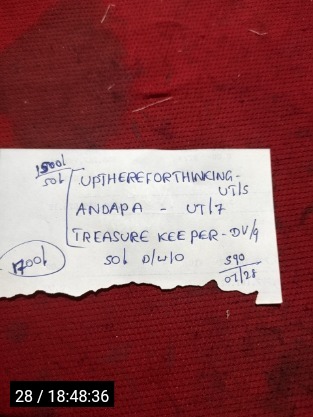 1500/
50/ UPTHEREFORTHINKING-
UT/5
ANDAPA - UT/7
TREASURE KEEPER-DV/9
1700/ 50/ D/W/O 590
07/28
28 / 18:48:36